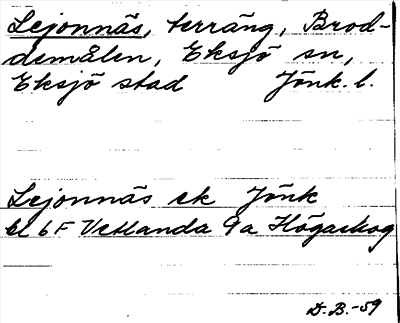 Lejonnäs, terräng, Brod-
demålen, Eksjö sn,
Eksjö stad Jönk. l.
Lejonnäs ek Jönk
bl 6F Vetlanda 9a Högaskog
D. B. -59